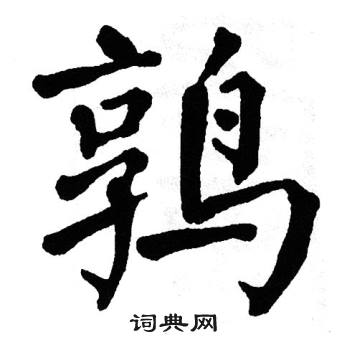 鹑
词典网